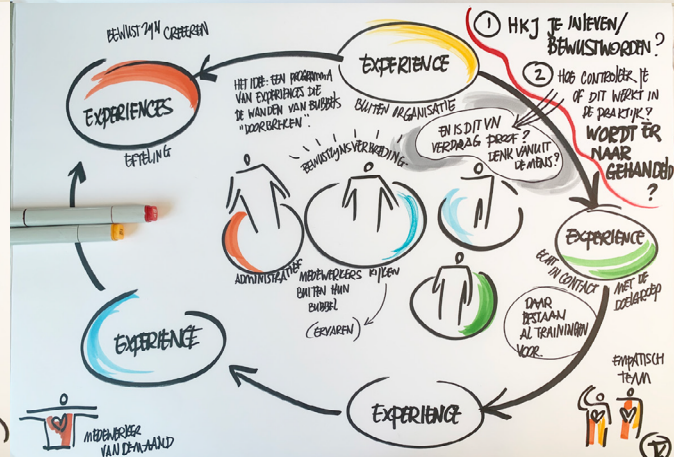 BEWUST ZIJN CREEËREN
EXPERIENCES
EFTELING
HET IDEE: EEN PROGRAMMA
VAN EXPERIENCES DIE
DE WANDEN VAN BUBBELS
"DOORBREKEN".
EXPERIENCE
BUITEN ORGANISATIE
① HKJ JE INLEVEN/
BEWUSTWORDEN?
② HOE CONTROLEER JE
OF DIT WERKT IN
DE PRAKTIJK?
WORDT ER
NAAR
GEHANDELD
?
EN IS DIT VN
VERDRAG PROOF?
DENK VANUIT
DE MENS?
BEWUSTZIJNSVERBREDING.
ADMINISTRATIEF
MEDEWERKERS KIJKEN
BUITEN HUN
BUBBEL
(ERVAREN)
EXPERIENCE
ECHT IN CONTACT
MET DE
DOELGROEP
DAAR
BESTAAN
AL TRAININGEN
VOOR.
EXPERIENCE
EXPERIENCE
MEDEWERKER
VAN DE MAAND
EMPATISCH
TEAM